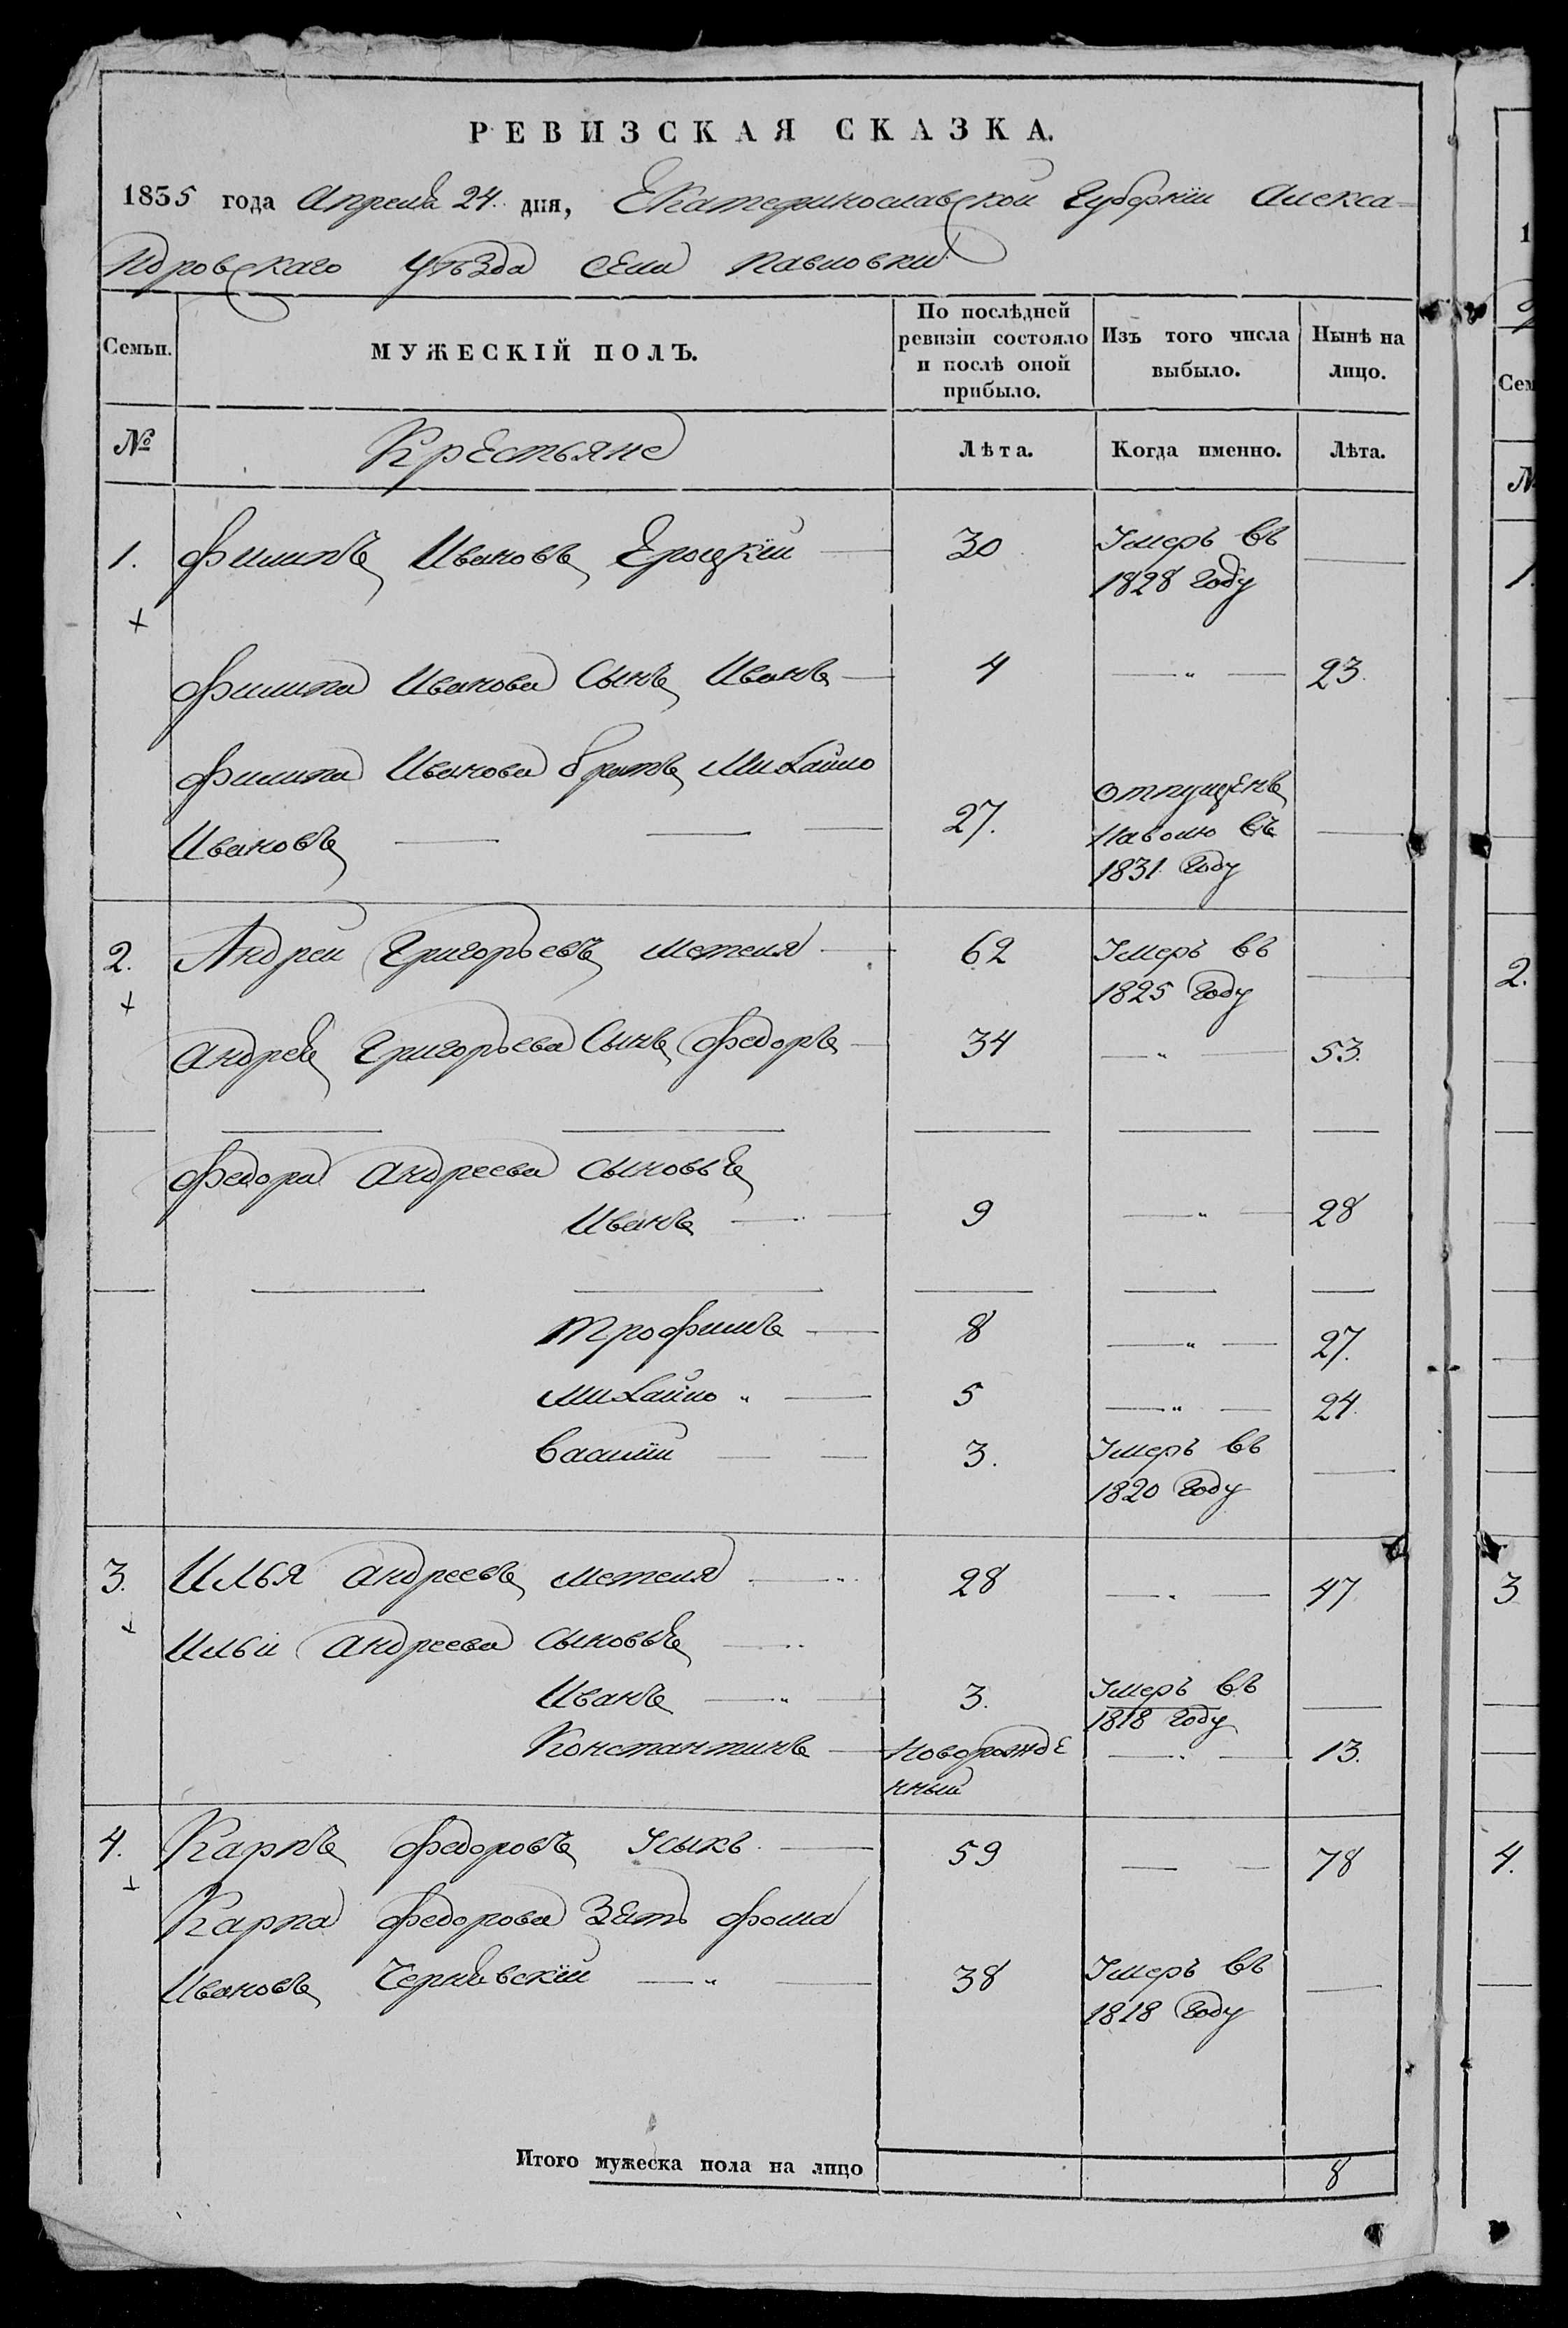 РЕВИЗСКАЯ СКАЗКА.
1835 года Апреля 24. дня, Екатеринославской Губернїи Алекса=
ндровскаго Уѣзда Села Павловки
Семьи.
МУЖЕСКІЙ ПОЛЪ.
По послѣдней ревизіи состояло и послѣ оной прибыло.
Изъ того числа выбыло.
Нынѣ на лицо.
№ Крестьяне Лѣта. Когда именно. Лѣта.
1. Филипъ Ивановъ 30 Умеръ въ
1828 Году
Филипа Иванова Сынъ Иванъ 4 23.
Филипа Иванова братъ Михайло
Ивановъ 27. отпущенъ
наволю въ
1831 Году
2. Андрей Григорьевъ Метеля 62 Умеръ въ
1825 Году
Андрея Григорьева Сынъ Федоръ 34 53.
Федора Андреева сыновья
Иванъ 9 28
Трофимъ 8 27.
Михайло 5 24
Василїй 3. Умеръ въ
1820 Году
3. Илья Андреевъ Метеля 28 47
Ильи Андреева сыновья
Иванъ 3. Умеръ въ
1818 Году
Константинъ Новорожде
нный 13.
4. Карпъ Федоровъ Усыкъ 59 78
Карпа Федорова Зять Фома
Ивановъ Чернявскїй 38 Умеръ въ
1818 Году
Итого мужеска пола на лицо 8
1
Сем
№
1.
2.
3
4.